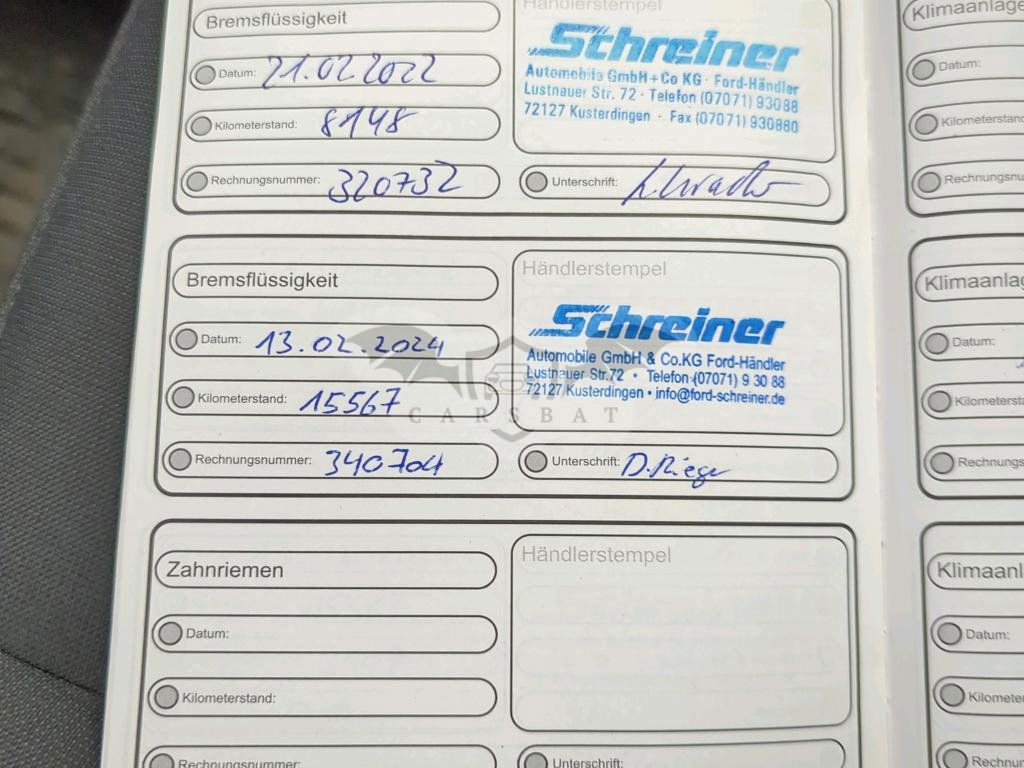 Bremsflüssigkeit
Datum: 21.02.2022
Kilometerstand: 8148
Rechnungsnummer: 320732
Händlerstempel
Schreiner
Automobile GmbH + Co KG · Ford-Händler
Lustnauer Str. 72 · Telefon (07071) 93088
72127 Kusterdingen · Fax (07071) 930880
Unterschrift:
Bremsflüssigkeit
Datum: 13.02.2024
Kilometerstand: 15567
Rechnungsnummer: 340704
Händlerstempel
Schreiner
Automobile GmbH & Co.KG Ford-Händler
Lustnauer Str.72 • Telefon (07071) 9 30 88
72127 Kusterdingen • info@ford-schreiner.de
Unterschrift: D. Rieger
CARSBAT
Zahnriemen
Datum:
Kilometerstand:
Rechnungsnummer:
Händlerstempel
Unterschrift:
Klimaanlage
Datum:
Kilometerstand
Rechnungsnu
Klimaanlag
Datum:
Kilometersta
Rechnungs
Klimaanl
Datum:
Kilomete
Rechnun